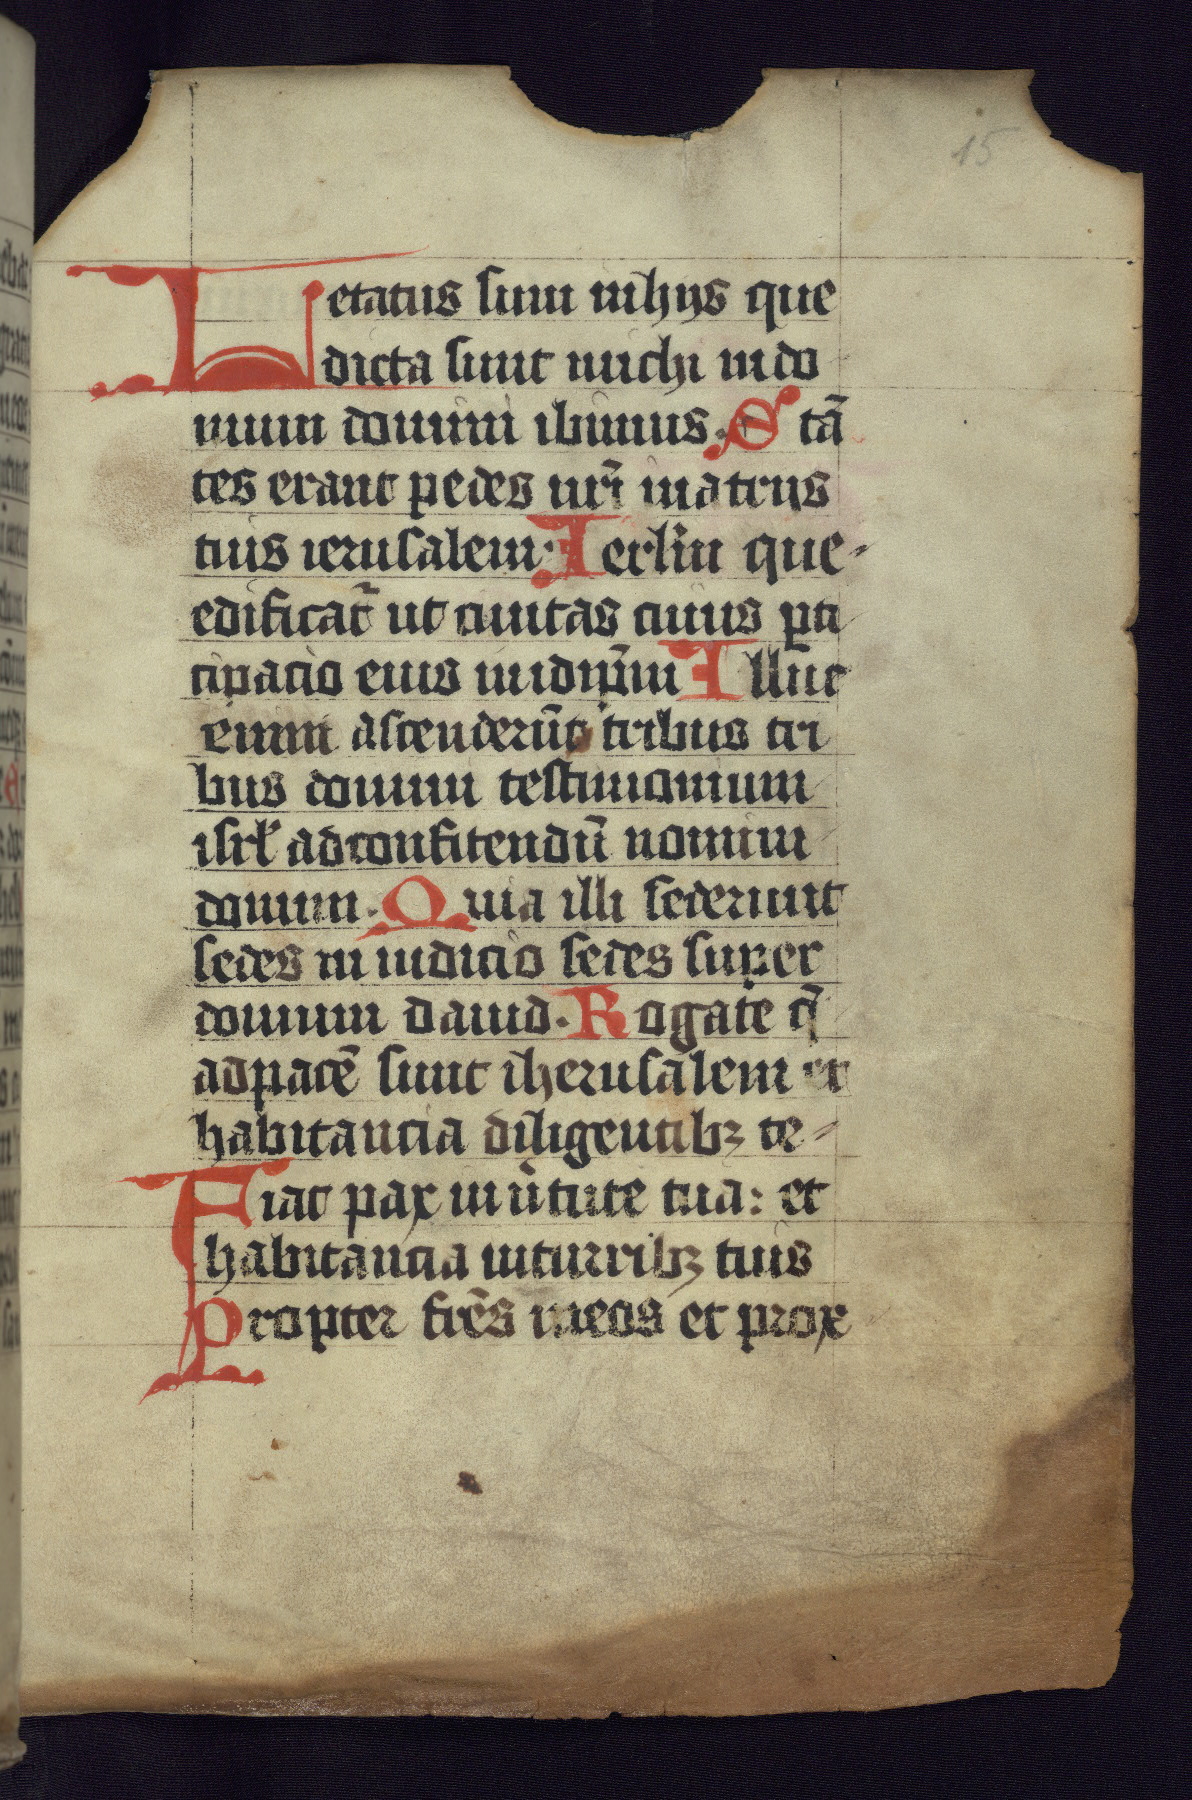 15
Letatus sum in hijs que
dicta sunt michi in do
mum domini ibimus. Stā
tes erant pedes nr̄i in atrijs
tuis ierusalem. Ierl̄m que
edificat᷑ ut ciuitas cuius p̄ti
cipacio eius in idip̄m Illuc
enim ascenderūt tribus tri
bus domini testimonium
isrl̄ ad confitendū nomini
domini. Quia illi sederunt
sedes in iudicio sedes super
domum dauid. Rogate q̄
ad pacē sunt iherusalem et
habitancia diligentibꝫ te
Fiat pax in ūtute tua: et
habitancia in turribꝫ tuis
Propter fr̄es meos et prox